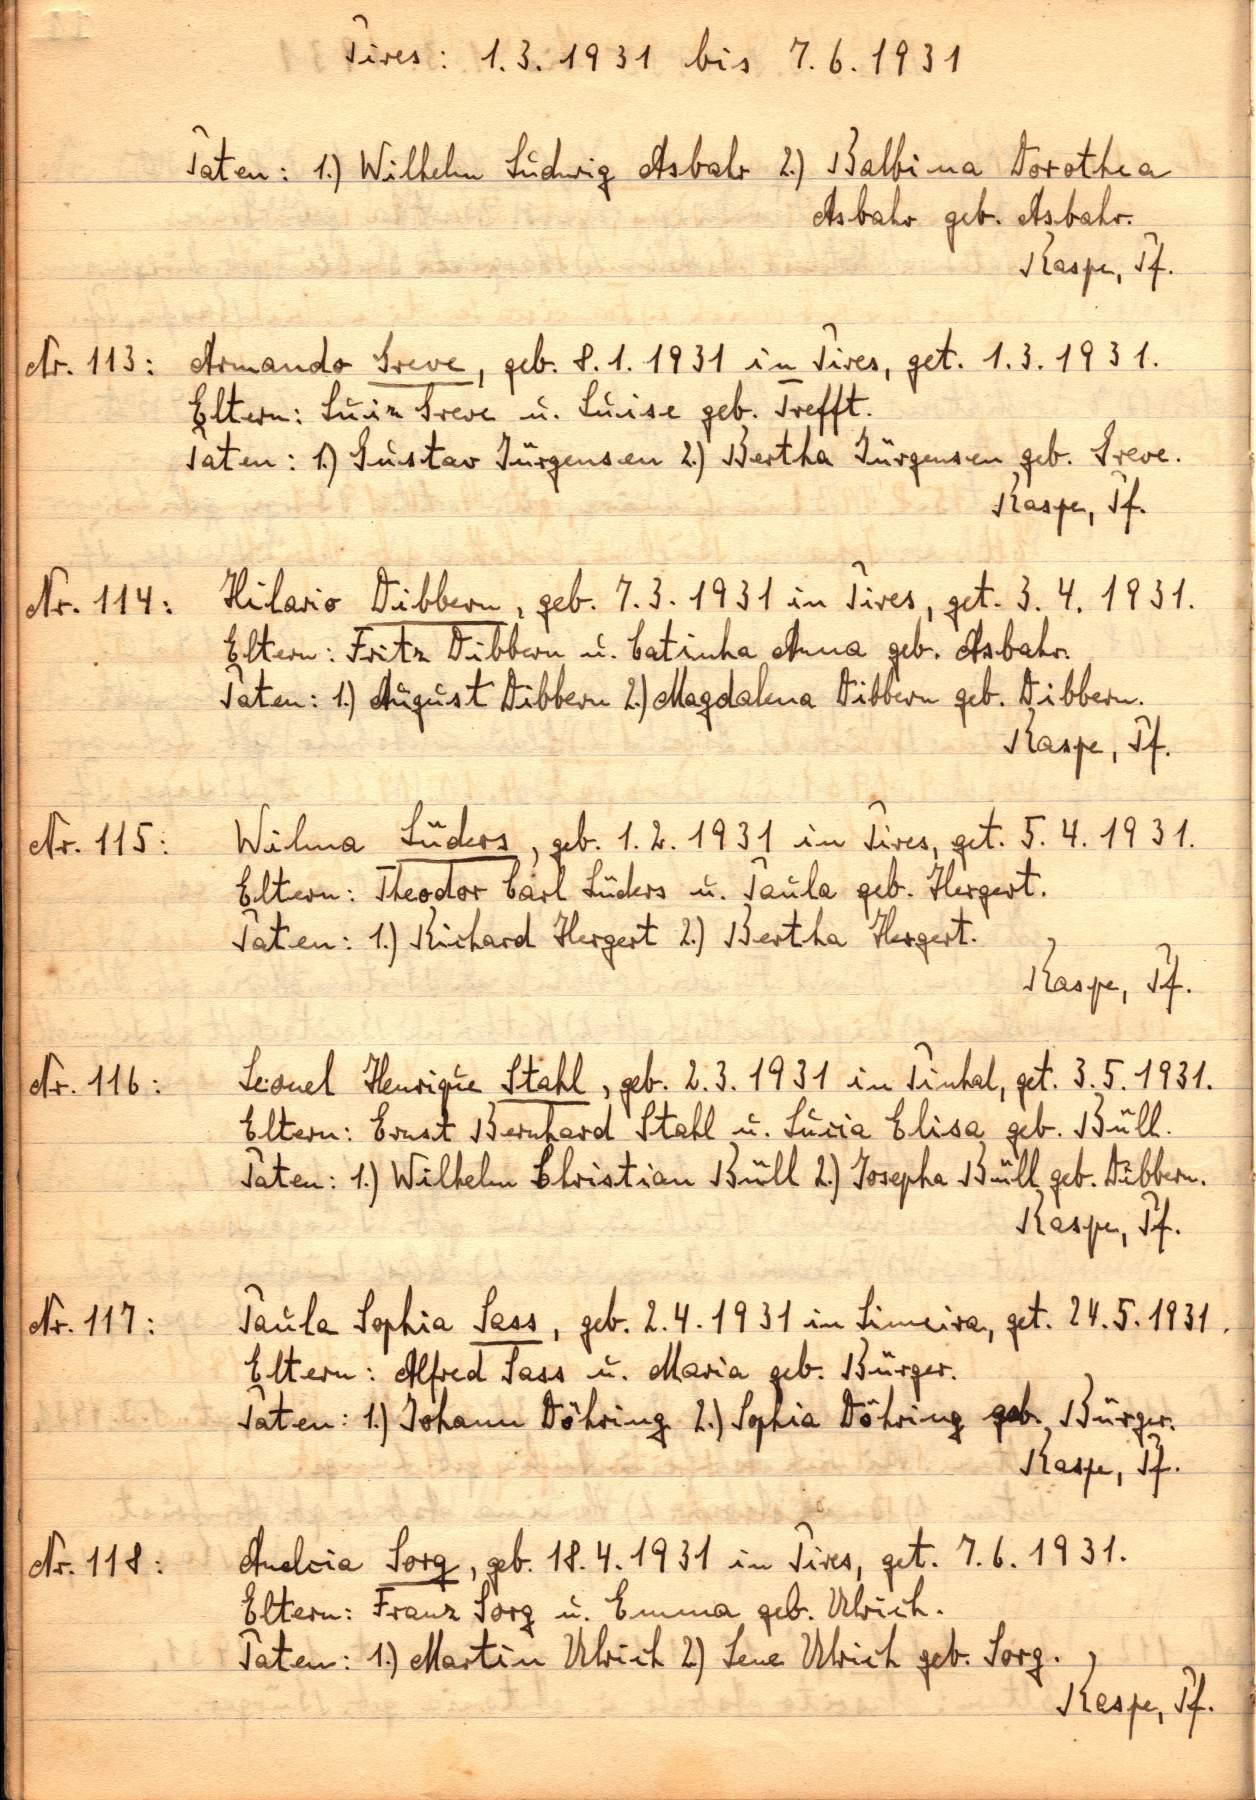 Pires: 1.3.1931 bis 7.6.1931
Paten: 1.) Wilhelm Ludwig Asbahr 2.) Balbina Dorothea
Asbahr geb. Asbahr.
Raspe, Pf.
Nr. 113: Armando Greve, geb. 8.1.1931 in Pires, get. 1.3.1931.
Eltern: Luiz Greve u. Luise geb. Trefft.
Paten: 1.) Gustav Jürgensen 2.) Bertha Jürgensen geb. Greve.
Raspe, Pf.
Nr. 114: Hilario Dibbern, geb. 7.3.1931 in Pires, get. 3.4.1931.
Eltern: Fritz Dibbern u. Catinha Anna geb. Asbahr.
Paten: 1.) August Dibbern 2.) Magdalena Dibbern geb. Dibbern.
Raspe, Pf.
Nr. 115: Wilma Lüders, geb. 1.2.1931 in Pires, get. 5.4.1931.
Eltern: Theodor Carl Lüders u. Paula geb. Hergert.
Paten: 1.) Richard Hergert 2.) Bertha Hergert.
Raspe, Pf.
Nr. 116: Leonel Henrique Stahl, geb. 2.3.1931 in Pinhal, get. 3.5.1931.
Eltern: Ernst Bernhard Stahl u. Lucia Elisa geb. Büll.
Paten: 1.) Wilhelm Christian Büll 2.) Josepha Büll geb. Dibbern.
Raspe, Pf.
Nr. 117: Paula Sophia Sass, geb. 2.4.1931 in Limeira, get. 24.5.1931.
Eltern: Alfred Sass u. Maria geb. Bürger.
Paten: 1.) Johann Döhring 2.) Sophia Döhring geb. Bürger.
Raspe, Pf.
Nr. 118: Andcia Sorg, geb. 18.4.1931 in Pires, get. 7.6.1931.
Eltern: Franz Sorg u. Emma geb. Ulrich.
Paten: 1.) Martin Ulrich 2.) Lene Ulrich geb. Sorg.
Raspe, Pf.